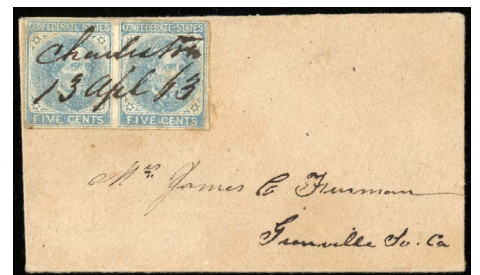 CONFEDERATE STATES CONFEDERATE STATES
Charleston
13 Apl 63
FIVE CENTS FIVE CENTS
Mrs. James C Furman
Greenville So. Ca